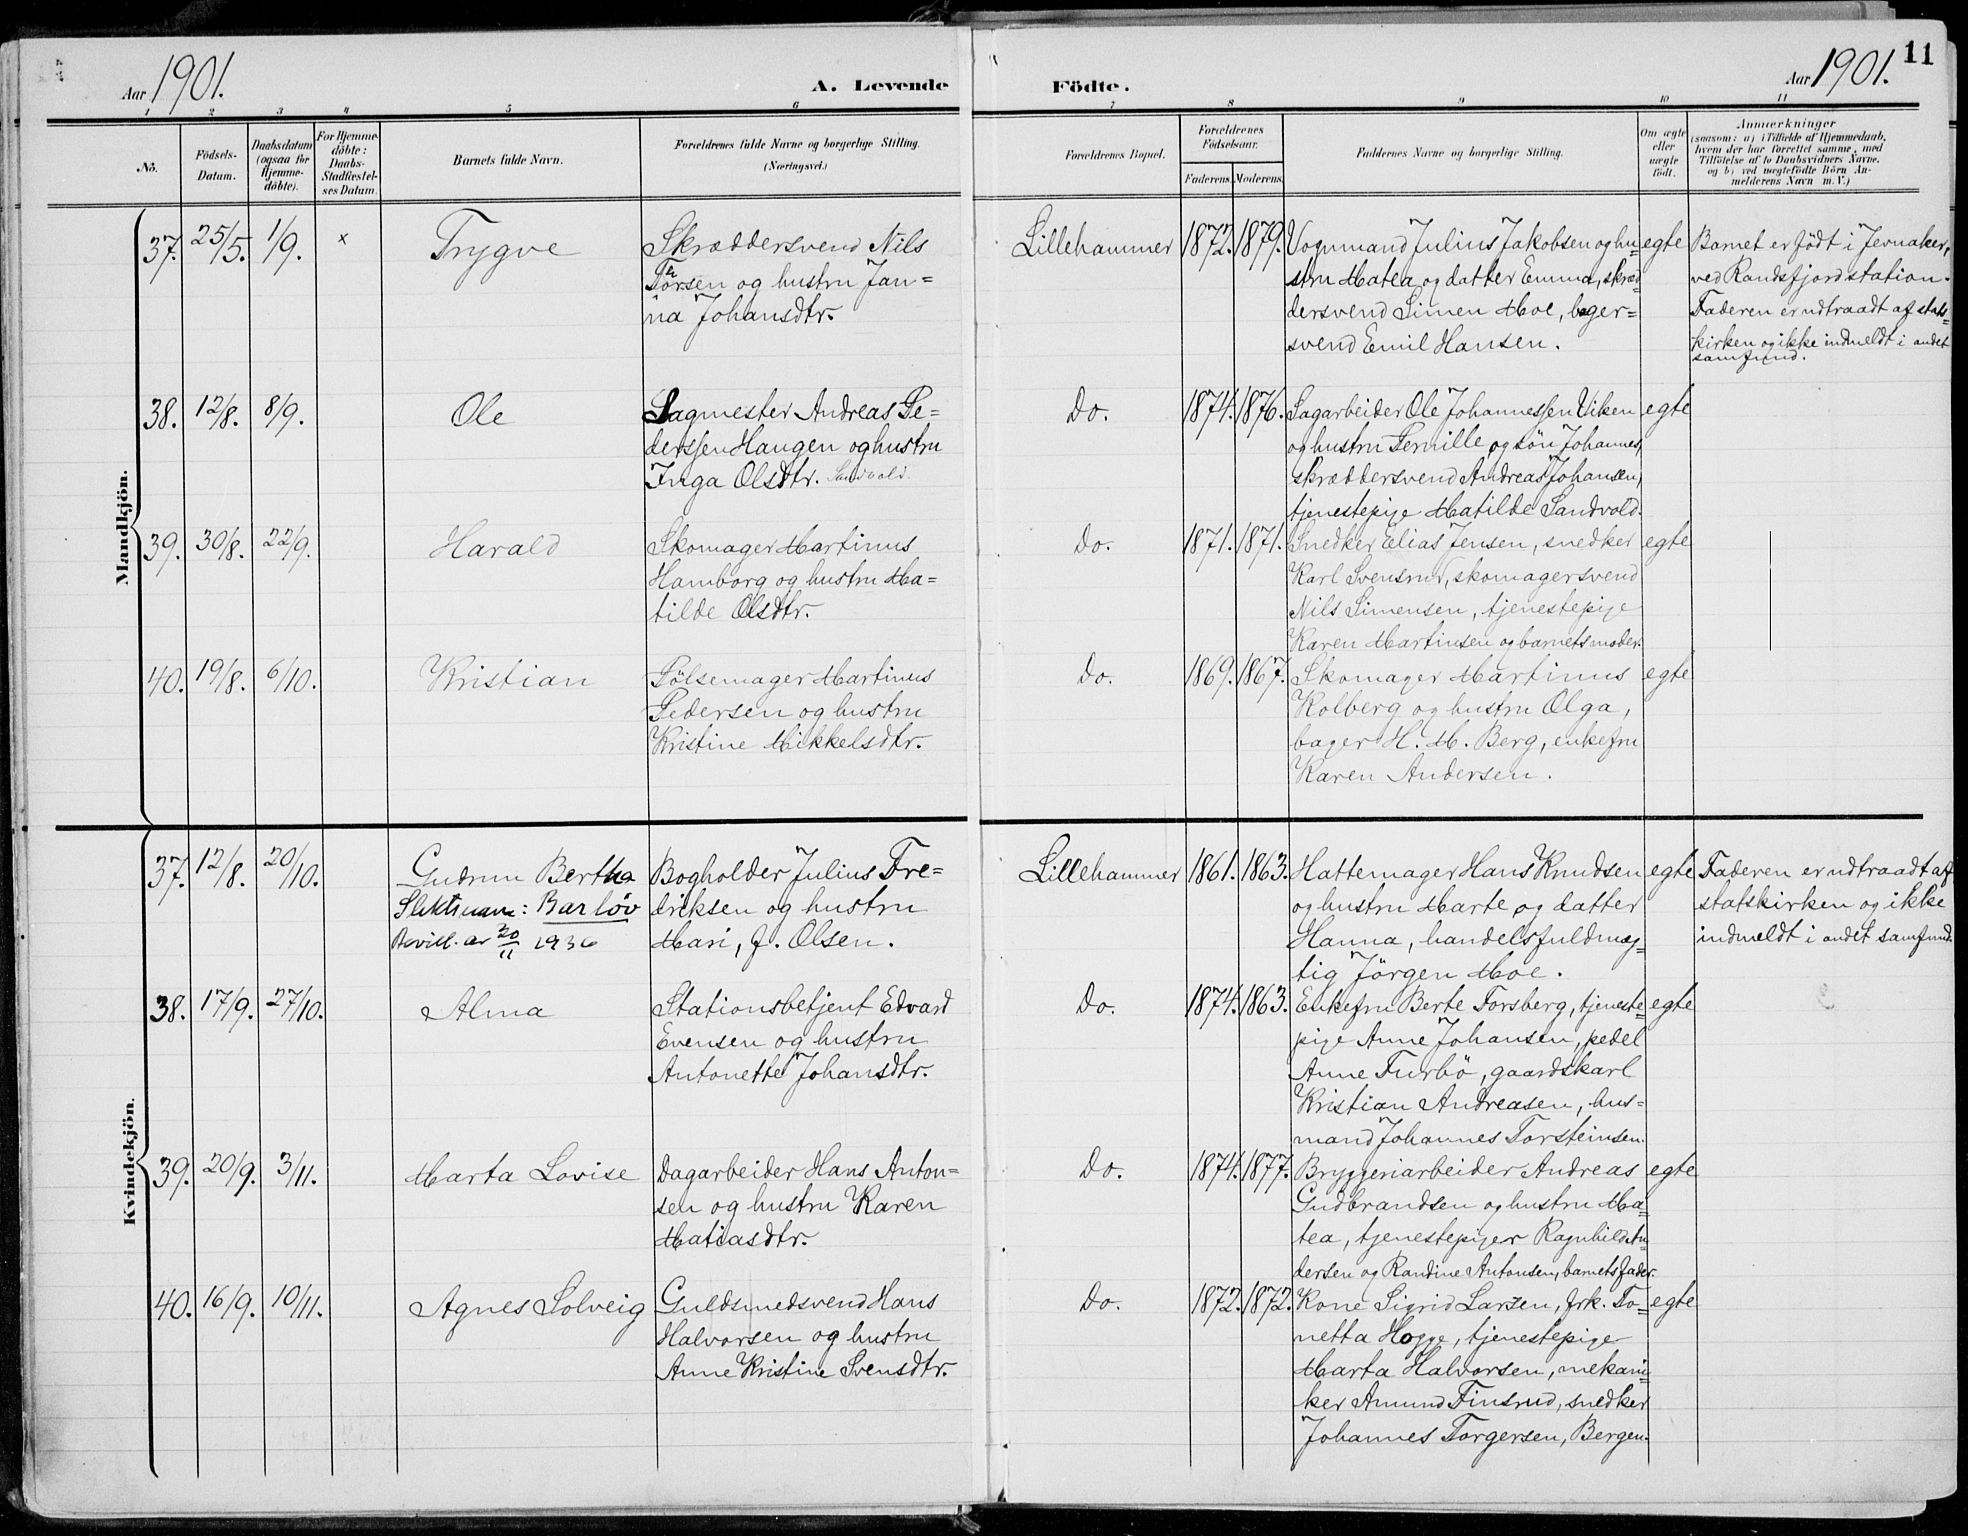 Aar 1901.
A. Levende
Födte.
Aar 1901.
11
1 2 3 4 5 6 7 8 9 10 11
No.
Födsels-
Datum.
Daabsdatum
(ogsaa for
Hjemme-
döbte).
For Hjemme-
döbte:
Daabs-
Stadfæstel-
ses Datum.
Barnets fulde Navn.
Forældrenes fulde Navne og borgerlige Stilling.
(Næringsvei.)
Forældrenes Bopæl.
Forældrenes
Födselsaar.
Faderens. Moderens.
Faddernes Navne og borgerlige Stilling.
Om ægte
eller
uægte
födt.
Anmærkninger
(saasom: a) i Tilfælde af Hjemmedaab,
hvem der har forrettet samme, med
Tilföielse af to Daabsvidners Navne.
og b) ved uægtefödte Börn An-
melderens Navn m. V.)
Mandkjön.
37. 25/5. 1/9. x
Trygve
Skræddersvend Nils
Torsen og hustru Jan=
na Johansdtr.
Lillehammer
1872. 1879.
Vognmand Julius Jakobsen og hu=
stru Matea og datter Emma, skræd=
dersvend Simen Moe, bager=
svend Emil Hansen.
egte
Barnet er födt i Jevnaker,
ved Randsfjord station.
Faderen er udtraadt af stats=
kirken og ikke indmeldt i andet
samfund.
38. 12/8. 8/9.
Ole
Sagmester Andreas Pe=
derssen Haugen og hustru
Inga Olsdtr. Sandvold.
Do.
1874. 1876.
Sagarbeider Ole Johannessen Viken
og hustru Pernille og sön Johannes,
skræddersvend Andreas Johansen,
tjenestepige Matilde Sandvold.
egte
39. 30/8. 22/9.
Harald
Skomager Martinus
Hamborg og hustru Ma=
tilde Olsdtr.
Do.
1871. 1871.
Snedker Elias Jensen, snedker
Karl Svensrud, skomagersvend
Nils Simensen, tjenestepige
Karen Martinsen og barnets moder.
egte
40. 19/8. 6/10.
Kristian
Pölsemager Martinus
Pedersen og hustru
Kristine Mikkelsdtr.
Do.
1869. 1867.
Skomager Martinus
Kolberg og hustru Olga,
bager H. M. Berg, enkefru
Karen Andersen.
egte
Kvindekjön.
37. 12/8. 20/10.
Gudrun Bertha
Slektsnavn: Barlöv
Bevill. av 20/11 1936
Bogholder Julius Fre=
driksen og hustru
Mari, f. Olsen.
Lillehammer
1861. 1863.
Hattemager Hans Knudsen
og hustru Marte og datter
Hanna, handelsfuldmæg=
tig Jörgen Moe.
egte
Faderen er udtraadt af
statskirken og ikke
indmeldt i andet samfund.
38. 17/9. 27/10.
Alma
Stationsbetjent Edvard
Evensen og hustru
Antonette Johansdtr.
Do.
1874. 1863.
Enkefru Berte Forsberg, tjeneste=
pige Anne Johansen, pedel
Anne Furbö, gaardskarl
Kristian Andreasen, hus=
mand Johannes Torsteinsen.
egte
39. 20/9. 3/11.
Marta Lovise
Dagarbeider Hans Anton=
sen og hustru Karen
Matiasdtr.
Do.
1874. 1877.
Bryggeriarbeider Andreas
Gudbrandsen og hustru Ma=
tea, tjenestepiger Ragnhild An=
dersen og Randine Antonsen, barnets fader.
egte
40. 16/9. 10/11.
Agnes Solveig
Guldsmedsvend Hans
Halvorsen og hustru
Anne Kristine Svensdtr.
Do.
1872. 1872.
Kone Sigrid Larsen, frk. To=
netta Hogge, tjenestepige
Marta Halvorsen, mekani=
ker Amund Finsrud, snedker
Johannes Torgersen, Bergen.
egte